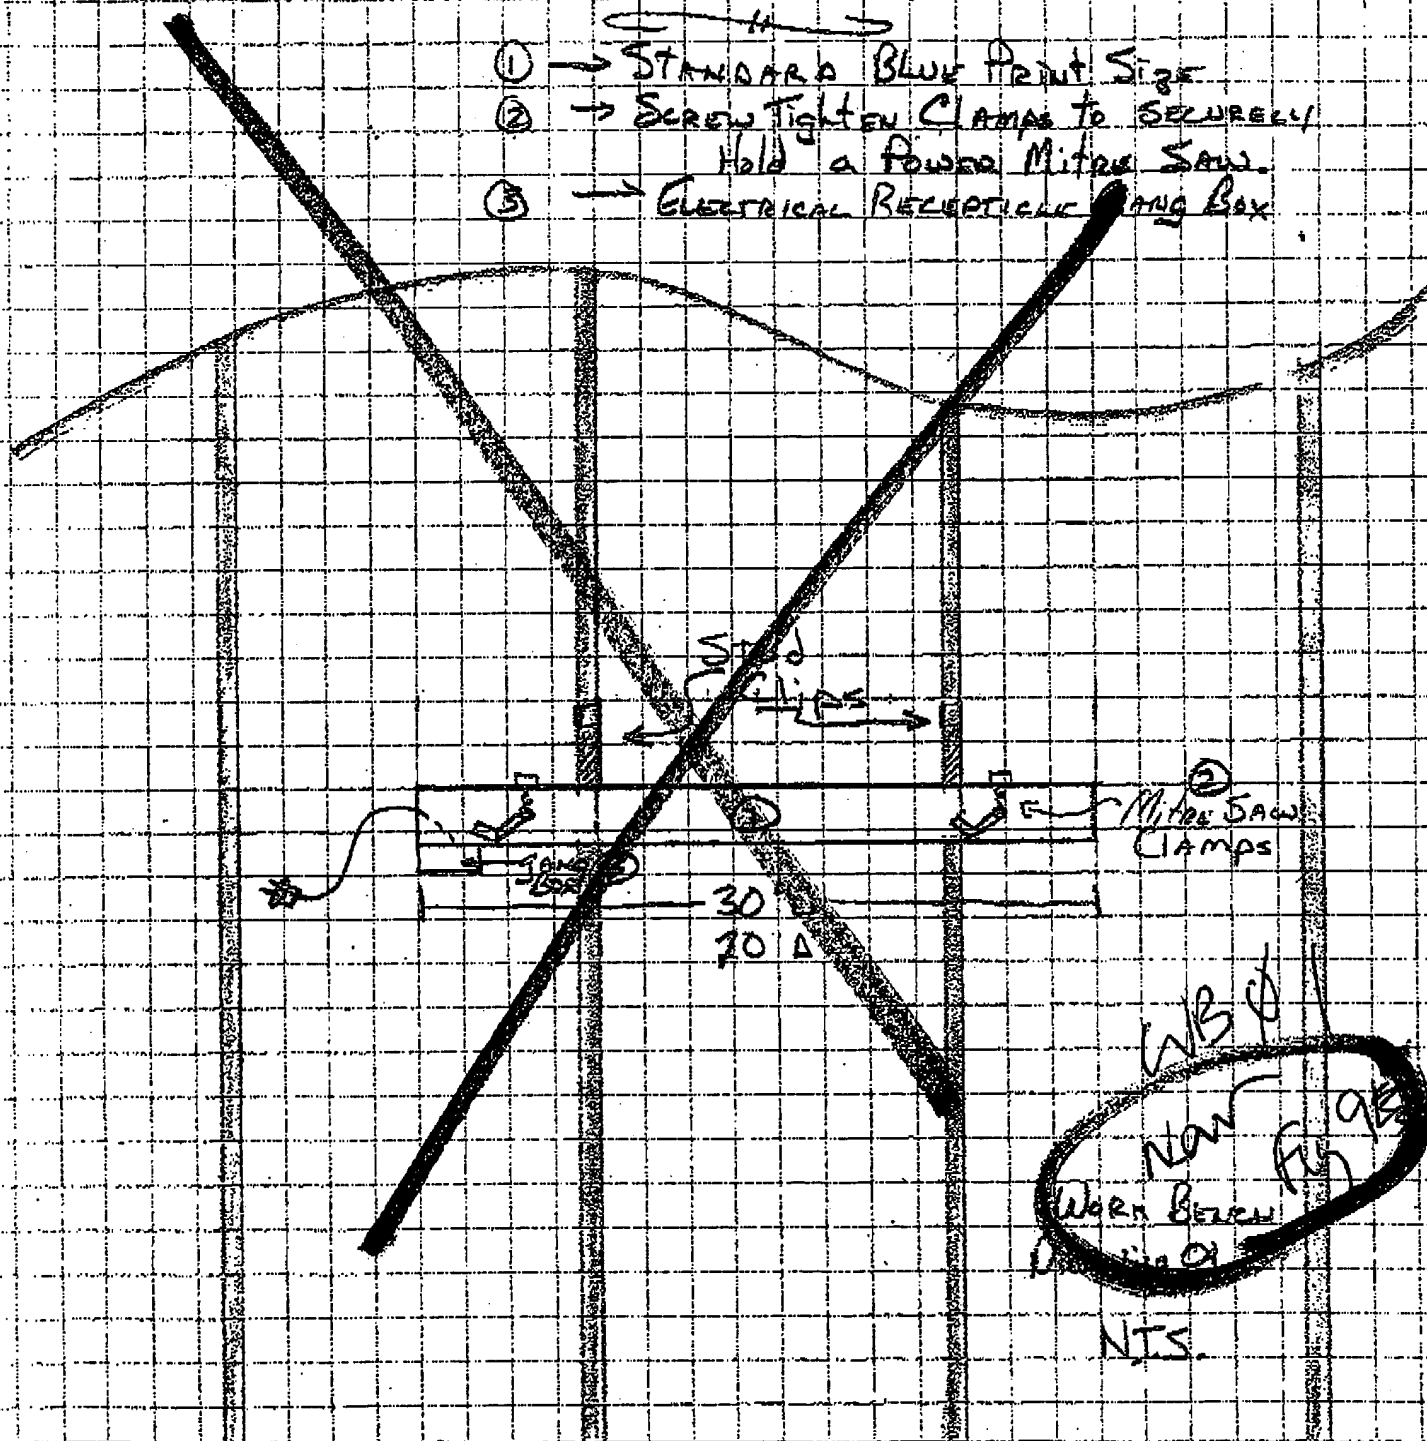 ① → STANDARD BLUE PRINT SIZE
② → SCREW TIGHTEN CLAMPS TO SECURELY
HOLD a POWER MITRE SAW.
③ → ELECTRICAL RECEPTICLE GANG BOX
Clips
②
MITRE SAW
CLAMPS
GANG
BOX
30
WB
Now
Fig 9
WORK BENCH
N.T.S.